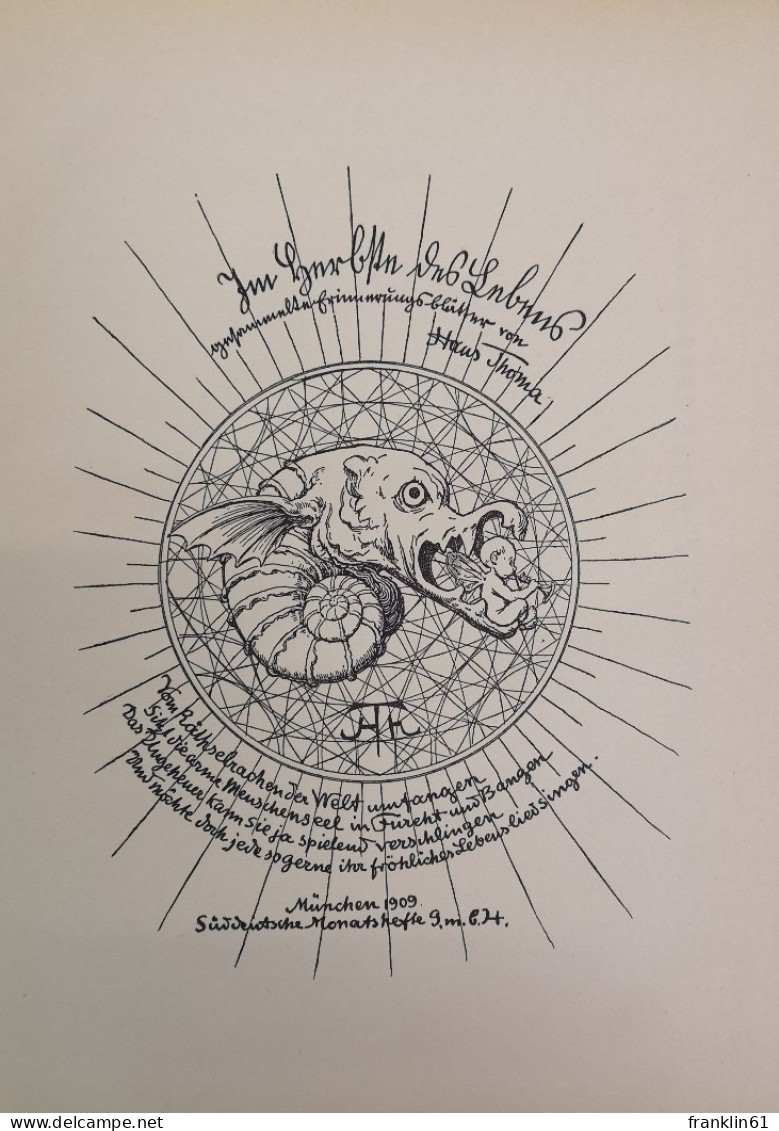 Im Herbste des Lebens
gesammelte Erinnerungsblätter von
Hans Thoma
HTH
Vom Räthselrachen der Welt umfangen
Sitzt die arme Menschenseel in Furcht und Bangen
Das Ungeheuer kann sie ja spielend verschlingen
Und möchte doch jede so gerne ihr fröhliches Lebenslied singen.
München 1909.
Süddeutsche Monatshefte G.m.b.H.
www.delcampe.net
franklin61